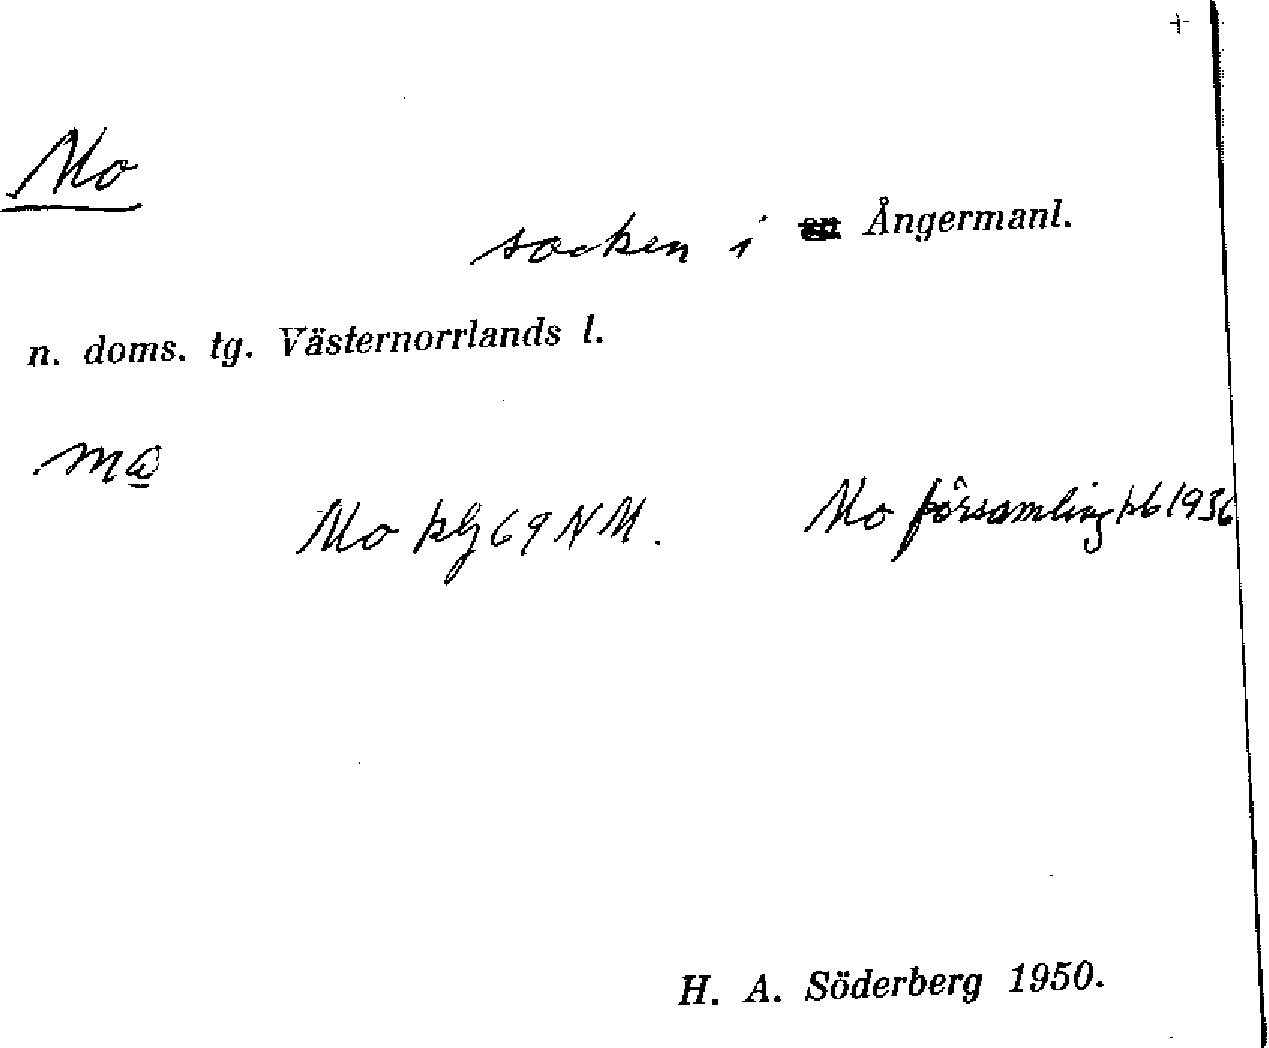 Mo
socken i Ångermanl.
n. doms. tg. Västernorrlands l.
Mo kbl 69 NM. Mo församling kb 1936
H. A. Söderberg 1950.